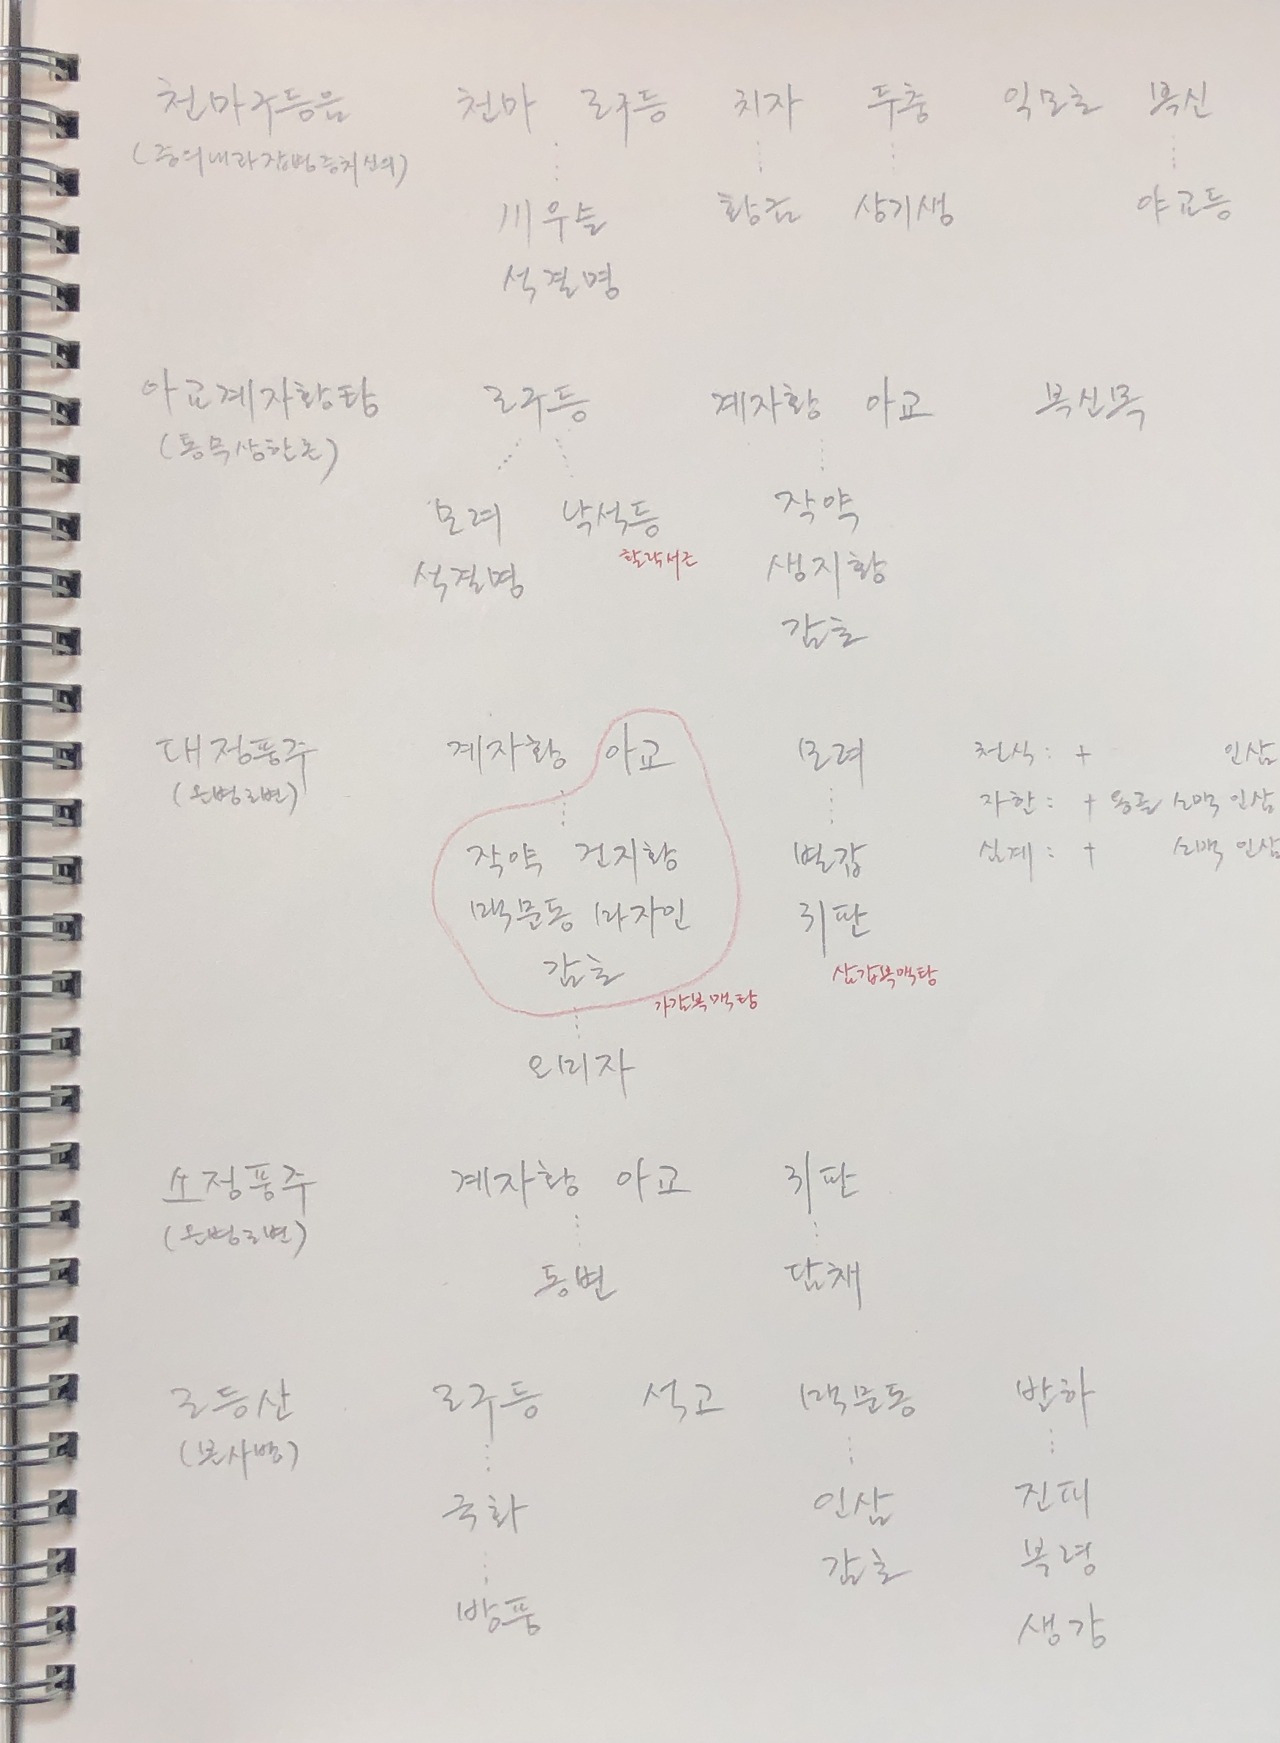 천마구등음 천마 조구등 치자 두충 익모초 복신
(중의내과잡병증치신의)
川우슬 황금 상기생 야교등
석결명
아교계자황탕 조구등 계자황 아교 복신목
(통속상한론)
모려 낙석등 작약
활락서근
석결명 생지황
감초
대정풍주 계자황 아교 모려 천식 : + 인삼
(온병조변) 자한 : + 용골 소맥 인삼
작약 건지황 별갑 심계 : + 소맥 인삼
맥문동 마자인 귀판
감초 삼갑복맥탕
가감복맥탕
오미자
소정풍주 계자황 아교 귀판
(온병조변)
동변 담채
조등산 조구등 석고 맥문동 반하
(본사방)
국화 인삼 진피
감초 복령
방풍 생강